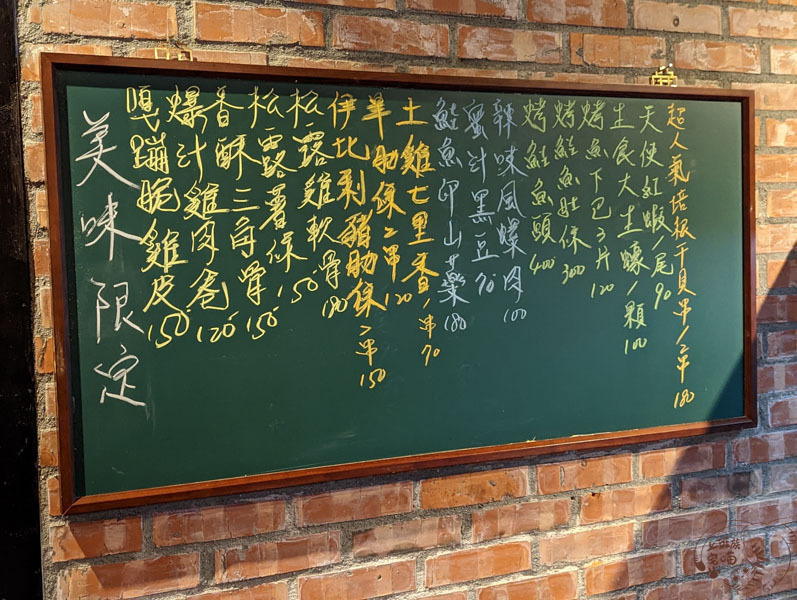 超人氣培根干貝串/二串180
天使紅蝦/尾90
生食大生蠔/顆100
烤魚下巴3片120
烤鮭魚肚條300
烤鮭魚頭400
辣味風螺肉100
蜜汁黑豆70
鮭魚卵山藥180
土雞七里香/串70
羊肋條二串120
伊比利豬肋條二串150
松露雞軟骨180
松露薯條150
香酥三角骨150
爆汁雞肉卷120
嘎蹦脆雞皮150
美味限定